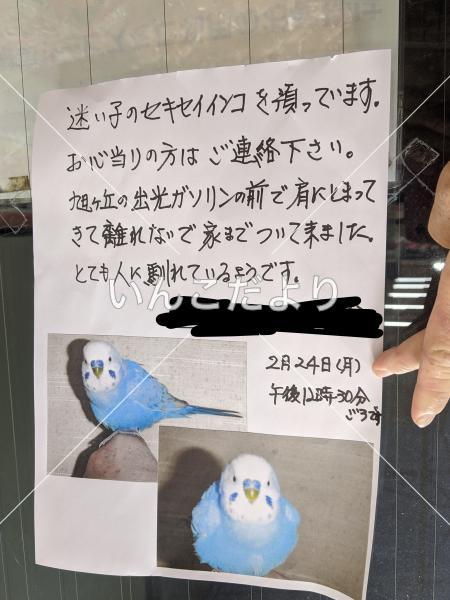 迷い子のセキセイインコを預っています。
お心当りの方はご連絡下さい。
旭ヶ丘の出光ガソリンの前で肩にとまって
きて離れないで家までついて来ました。
とても人に馴れているようです。
いんこだより
2月24日(月)
午後12時30分
ごろです